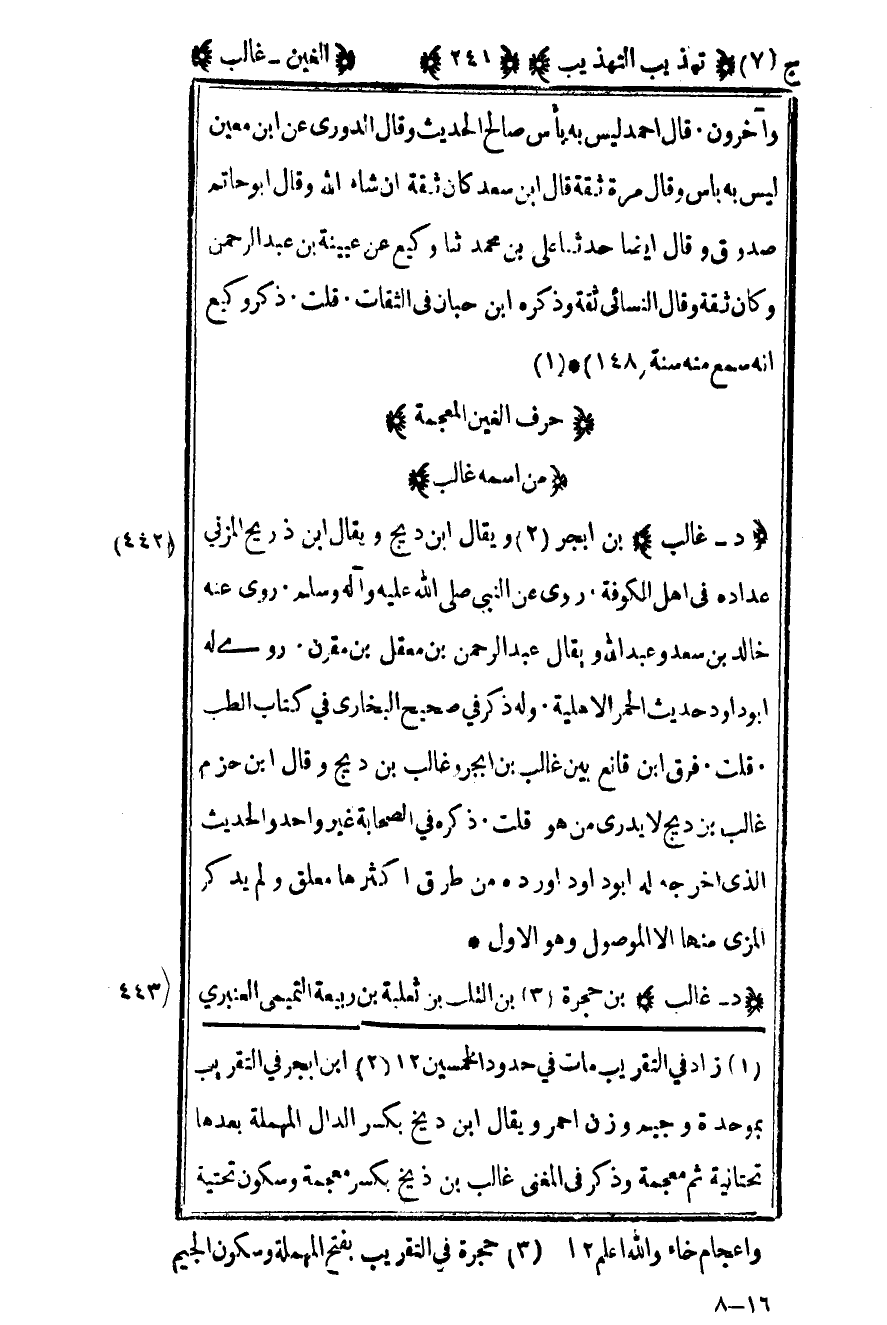 ج (٧) ﴿ تهذيب التهذيب ﴾ ﴿ ٢٤١ ﴾ ﴿ الغين ـ غالب ﴾
وآخرون ٠ قال احمد ليس به بأس صالح الحديث وقال الدورى عن ابن معين
ليس به باس وقال مرة ثقة قال ابن سعد كان ثقة ان شاء الله وقال ابو حاتم
صدوق وقال ايضا حدثنا على بن محمد ثنا وكيع عن عيينة بن عبد الرحمن
وكان ثقة وقال النسائى ثقة وذكره ابن حبان فى الثقات ٠ قلت ٠ ذكر وكيع
انه سمع منه سنة (١٤٨) * (١)
﴿ حرف الغين المعجمة ﴾
﴿ من اسمه غالب ﴾
﴿ د ـ غالب ﴾ بن ابجر (٢) ويقال ابن ديج ويقال ابن ذريح المزني (٤٤٢)
عداده فى اهل الكوفة ٠ روى عن النبي صلى الله عليه وآله وسلم ٠ روى عنه
خالد بن سعد وعبد الله ويقال عبد الرحمن بن معقل بن مقرن ٠ روے له
ابوداود حديث الحمر الاهلية ٠ وله ذكر في صحيح البخارى في كتاب الطب
٠ قلت ٠ فرق ابن قانع بين غالب بن ابجر وغالب بن ديج وقال ابن حزم
غالب بن ديج لا يدرى من هو قلت ٠ ذكره في الصحابة غير واحد والحديث
الذى اخرجه له ابوداود اورده من طرق اكثرها معلق ولم يذكر
المزى منها الا الموصول وهو الاول *
﴿ د ـ غالب ﴾ بن حجرة (٣) بن التلب بن ثعلبة بن ربيعة التميمى العنبري (٤٤٣)
(١) زاد في التقريب مات في حدود الخمسين ١٢ (٢) ابن ابجر في التقريب
بموحدة وجيم وزن احمر ويقال ابن ديخ بكسر الدال المهملة بعدها
تحتانية ثم معجمة وذكر فى المغنى غالب بن ذيخ بكسر معجمة وسكون تحتية
واعجام خاء والله اعلم ١٢ (٣) حجرة في التقريب بفتح المهملة وسكون الجيم
٨–١٦